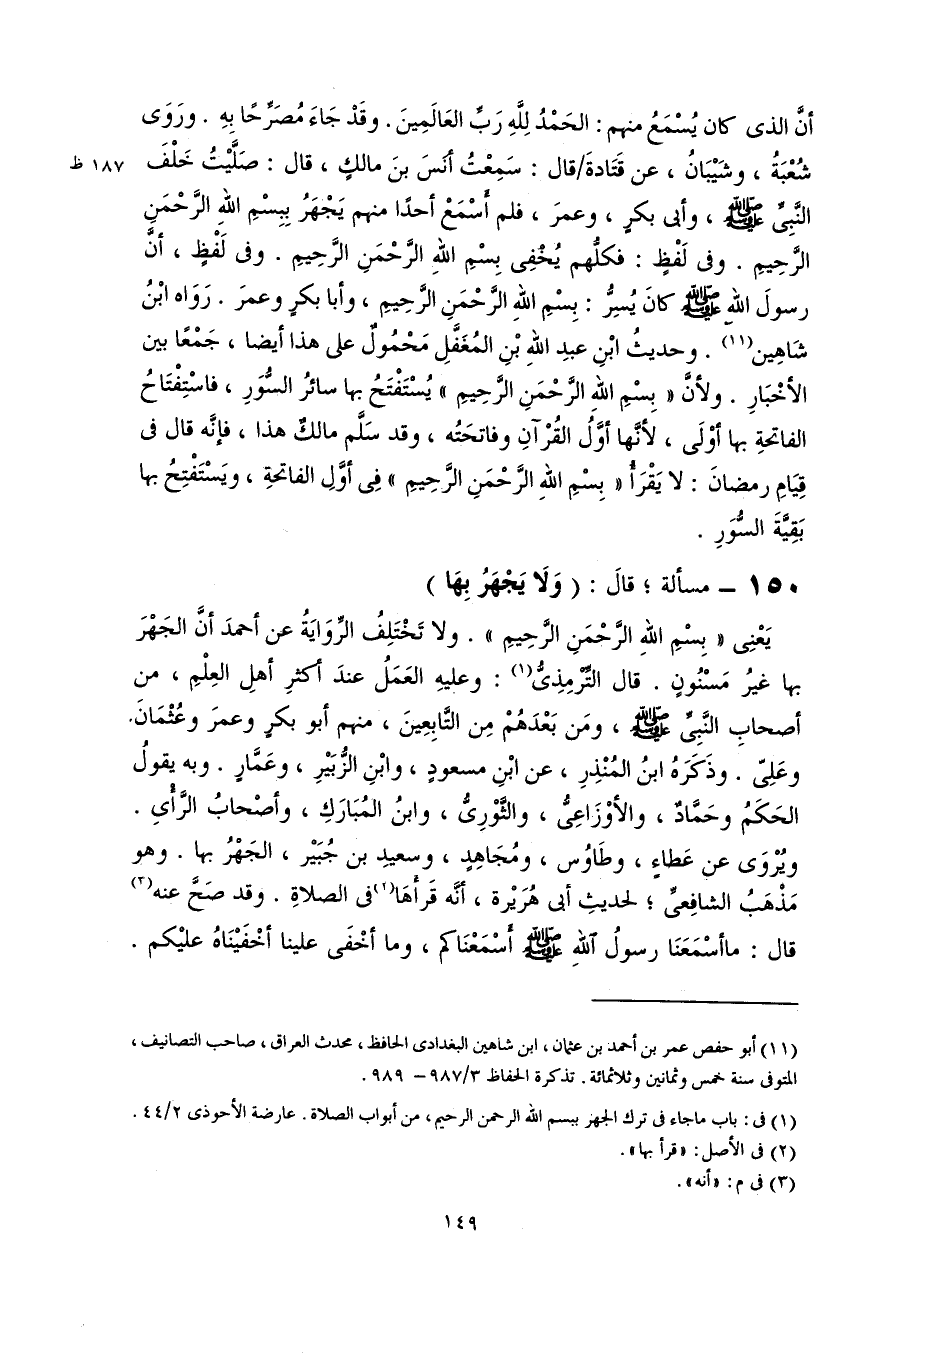 أنَّ الذى كان يُسْمَعُ منهم : الحَمْدُ لِلَّهِ رَبِّ العَالَمِينَ . وقَدْ جَاءَ مُصَرَّحًا بِهِ . ورَوَى
شُعْبَةُ ، وشَيْبَانُ ، عن قَتَادةَ/قال : سَمِعْتُ أنَسَ بنَ مالكٍ ، قال : صَلَّيْتُ خَلْفَ ١٨٧ ظ
النَّبِىِّ ﷺ ، وأبى بكرٍ ، وعمرَ ، فلم أَسْمَعْ أحدًا منهم يَجْهَرُ بِبِسْمِ اللهِ الرَّحْمَنِ
الرَّحِيمِ . وفى لَفْظٍ : فكلُّهم يُخْفِى بِسْمِ اللهِ الرَّحْمَنِ الرَّحِيمِ . وفى لَفْظٍ ، أنَّ
رسولَ اللهِ ﷺ كانَ يُسِرُّ : بِسْمِ اللهِ الرَّحْمَنِ الرَّحِيمِ ، وأبا بكرٍ وعمرَ . رَوَاه ابْنُ
شَاهِين(١١) . وحديثُ ابْنِ عبدِ اللهِ بْنِ المُغَفَّلِ مَحْمُولٌ على هذا أيضا ، جَمْعًا بين
الأخْبَارِ . ولأنَّ « بِسْمِ اللهِ الرَّحْمَنِ الرَّحِيمِ » يُسْتَفْتَحُ بها سائرُ السُّوَرِ ، فاسْتِفْتَاحُ
الفاتحةِ بها أوْلَى ، لأنَّها أوَّلُ القُرْآنِ وفاتحَتُه ، وقد سَلَّم مالكٌ هذا ، فإنَّه قال فى
قِيَامِ رمضانَ : لا يَقْرَأُ « بِسْمِ اللهِ الرَّحْمَنِ الرَّحِيمِ » فِى أوَّلِ الفاتحةِ ، ويَسْتَفْتِحُ بها
بَقِيَّةَ السُّوَرِ .
١٥٠ – مسألة ؛ قالَ : ( وَلَا يَجْهَرُ بِهَا )
يَعْنِى « بِسْمِ اللهِ الرَّحْمَنِ الرَّحِيمِ » . ولا تَخْتَلِفُ الرِّوَايَةُ عن أحمدَ أنَّ الجَهْرَ
بها غيرُ مَسْنُونٍ . قال التِّرْمِذِىُّ(١) : وعليهِ العَمَلُ عندَ أكثرِ أهلِ العِلْمِ ، من
أصحابِ النَّبِىِّ ﷺ ، ومَن بَعْدَهُمْ مِن التَّابِعِينَ ، منهم أبو بكرٍ وعمرَ وعُثْمَانَ
وعَلِىّ . وذَكَرَهُ ابنُ المُنْذِرِ ، عن ابْنِ مسعودٍ ، وابْنِ الزُّبَيْرِ ، وعَمَّارٍ . وبه يقولُ
الحَكَمُ وحَمَّادٌ ، والأوْزَاعِىُّ ، والثَّوْرِىُّ ، وابنُ المُبَارَكِ ، وأصْحابُ الرَّأْىِ .
ويُرْوَى عن عَطاءٍ ، وطَاوُسٍ ، ومُجَاهِدٍ ، وسعيدِ بن جُبَيْر ، الجَهْرُ بها . وهو
مَذْهَبُ الشافعىِّ ؛ لحديثِ أبى هُرَيْرة ، أنَّه قَرأَهَا(٢)فى الصلاةِ . وقد صَحَّ عنه(٣)
قال : ماأسْمَعَنَا رسولُ اللهِ ﷺ أَسْمَعْنَاكم ، وما أخْفَى علينا أخْفَيْنَاهُ عليكم .
(١١) أبو حفص عمر بن أحمد بن عثمان ، ابن شاهين البغدادى الحافظ ، محدث العراق ، صاحب التصانيف ،
المتوفى سنة خمس وثمانين وثلاثمائة . تذكرة الحفاظ ٩٨٧/٣ – ٩٨٩ .
(١) فى : باب ماجاء فى ترك الجهر ببسم الله الرحمن الرحيم ، من أبواب الصلاة . عارضة الأحوذى ٤٤/٢ .
(٢) فى الأصل : «قرأ بها» .
(٣) فى م : «أنه» .
١٤٩